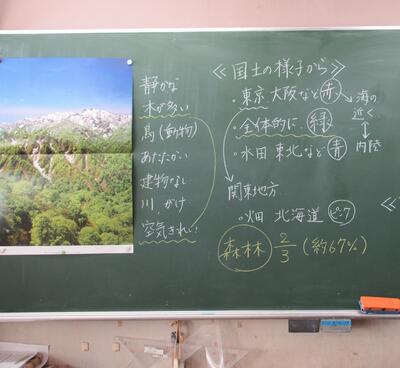 静かな
木が多い
鳥(動物)
あたたかい
建物なし
川、がけ
空気きれい
≪国土の様子から≫
・東京 大阪など 赤
海の近く
↕
内陸
・全体的に 緑
・水田 東北など 青
関東地方
・畑 北海道 ピンク
森林 2/3 (約67%)
≪